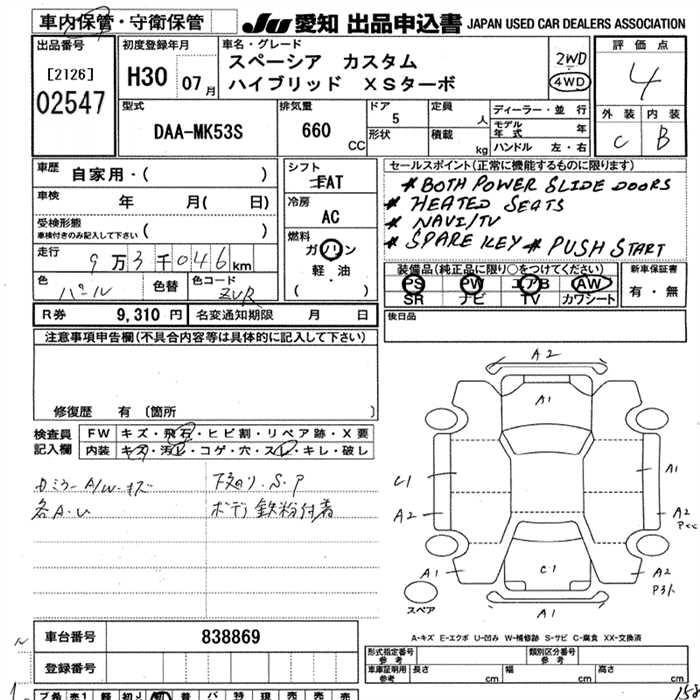 車内保管・守衛保管
JU 愛知 出品申込書 JAPAN USED CAR DEALERS ASSOCIATION
出品番号
[2126]
02547
初度登録年月
H30 07月
車名・グレード
スペーシア カスタム
ハイブリッド XSターボ
2WD
4WD
評価点
4
外装 内装
C B
型式
DAA-MK53S
排気量
660 CC
ドア
5
形状
定員
人
積載
kg
ディーラー・並行
モデル年式 年
ハンドル 左・右
車歴
自家用・( )
車検
年 月( 日)
受検形態
車検付きのみ記入して下さい ( )
走行
9万3千046km
色
パール
色替
色コード
ZVR
シフト
FAT
冷房
AC
燃料
ガソリン
軽・油
( )
セールスポイント(正常に機能するものに限ります)
# BOTH POWER SLIDE DOORS
# HEATED SEATS
# NAVI/TV
# SPARE KEY # PUSH START
装備品(純正品に限り○をつけてください)
PS PW エアB AW
SR ナビ TV カワシート
新車保証書
有・無
R券 9,310 円 名変通知期限 月 日
後日品
注意事項申告欄(不具合内容等は具体的に記入して下さい)
修復歴 有 〔箇所 〕
検査員記入欄
FW キズ・飛石・ヒビ割・リペア跡・X要
内装 キズ・汚レ・コゲ・穴・スレ・キレ・破レ
カミラーA/W・キズ
各A・U
下廻り・S・P
ボデー鉄粉付着
A2
A1
C1
A1
A2
A2
Pcc
A1
C1
A2
P3ト
A1
スペア
A-キズ E-エクボ U-凹み W-補修跡 S-サビ C-腐食 XX-交換済
車台番号 838869
登録番号
形式指定番号
参考
類別区分番号
参考
車庫証明用
参考
長さ cm 幅 cm 高さ cm